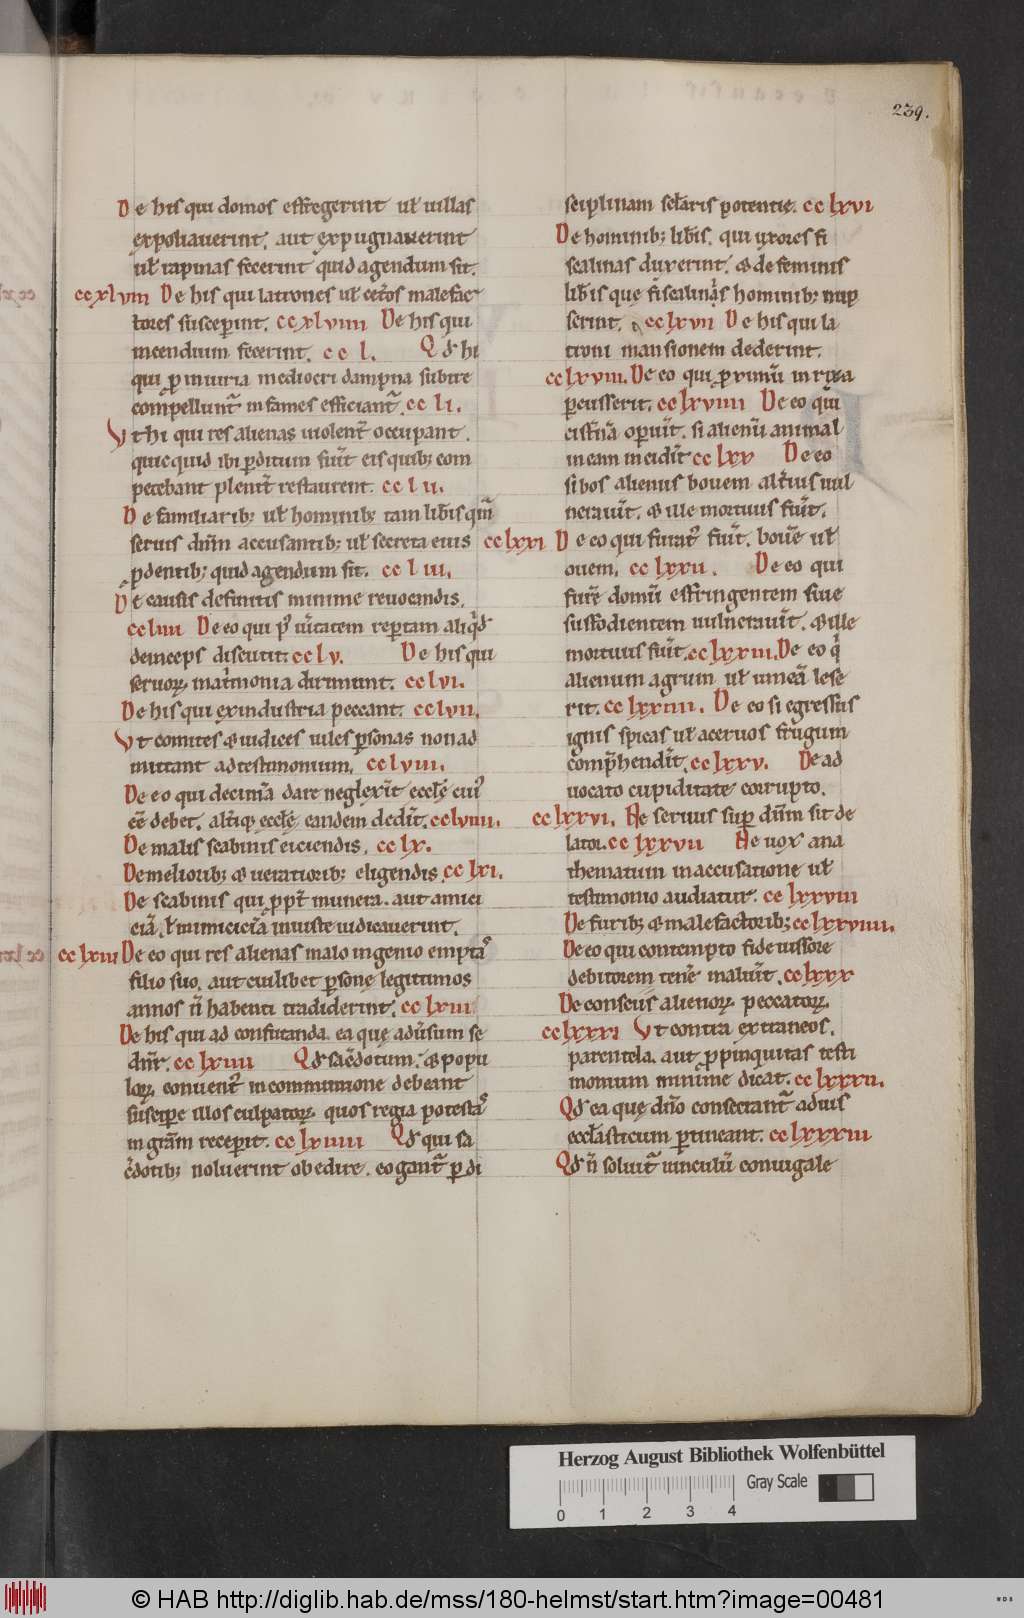 239.
De his qui domos effregerint ul̄ uillas
expoliauerint, aut expugnauerint
ul̄ rapinas fecerint quid agendum sit.
ccxlviii De his qui latrones ul̄ cet̄os malefac
tores susceperint. ccxlviiii De his qui
incendium fecerint. cc l. Qd hi
qui p iniuria mediocri dampna subire
compellunt̄ infames efficiant̄. cc li.
Vt hi qui res alienas uiolent̄ occupant.
quicquid ibi pditum fuit̄ eis quib; com
petebant plenit̄ restaurent. cc l ii.
De familiarib; ul̄ hominib; tam lib̄is qm̄
seruis dn̄m accusantib; ul̄ secreta eius
pdentib; quid agendum sit. cc l iii.
De causis definitis minime reuocandis.
cc liiii De eo qui p̄ ueritatem repertam aliqd
deinceps discutit. cc l v. De his qui
seruoꝝ matrimonia dirimunt. cc lvi.
De his qui ex industria peccant. cc lvii.
Vt comites & iudices uiles psonas non ad
mittant ad testimonium. cc lviii.
De eo qui decimā dare neglexit̄ eccl̄ę cui
eē debet. alt̄iq; eccl̄ę eandem dedit̄. cc lviiii.
De malis scabinis eiciendis. cc lx.
De meliorib; & ueratiorib; eligendis. cc lxi.
De scabinis qui ppt̄ munera. aut amici
ciā. ul̄ inimiciciā iniuste iudicauerint.
cc lxii De eo qui res alienas malo ingenio emptas
filio suo. aut cuilibet psonę legitimos
annos n̄ habenti tradiderint. cc lxiii
De his qui ad confutanda. ea quę aduersum se
dn̄r. cc lxiiii Qd sac̄dotum. & popu
loꝝ conuent̄ in communione debeant
suscipe illos culpatoꝝ quos regia potestas
in gr̄am receperit. cc lxiiiii Qd qui sa
c̄dotib; noluerint obedire. cogant̄ p di
sciplinam sc̄laris potentię. cc lxvi
De hominib; lib̄is. qui uxores fi
scalinas duxerint. & de feminis
lib̄is quę fiscalinis hominib; nup
serint. cc lxvii De his qui la
troni mansionem dederint.
cc lxviii. De eo qui proximū in rixa
pcusserit. cc lxviiii De eo qui
cist̄nā opuit̄. si alienū animal
in eam inciderit̄ cc lxx De eo
si bos alienus bouem alt̄ius uul
nerauit̄. & ille mortuus fuit̄.
cc lxxi De eo qui furat̄ fuit̄. bouē ul̄
ouem. cc lxxii. De eo qui
furē domū effringentem siue
suffodientem uulnerauit̄. & ille
mortuus fuit̄. cc lxxiii. De eo q̇
alienum agrum ul̄ uineā lese
rit. cc lxxiiii. De eo si egressus
ignis spicas ul̄ aceruos frugum
comphendit̄. cc lxxv. De ad
uocato cupiditate corrupto.
cc lxxvi. Ne seruus sup dn̄m sit de
lator. cc lxxvii Ne uox ana
thematum in accusatione ul̄
testimonio audiatur. cc lxxviii
De furib; & malefactorib; cc lxxviiii.
De eo qui contempto fideiussore
debitorem tenē maluit̄. cc lxxx
De consciis alienoꝝ peccatoꝝ.
cc lxxxi Vt contra extraneos.
parentela. aut ppinquitas testi
monium minime dicat. cc lxxxii.
Qd ea quę dn̄o consecrant̄ ad ius
eccl̄asticum ptineant. cc lxxxiii
Qd n̄ soluit̄ uinculū coniugale
Herzog August Bibliothek Wolfenbüttel
Gray Scale
0 1 2 3 4
© HAB http://diglib.hab.de/mss/180-helmst/start.htm?image=00481